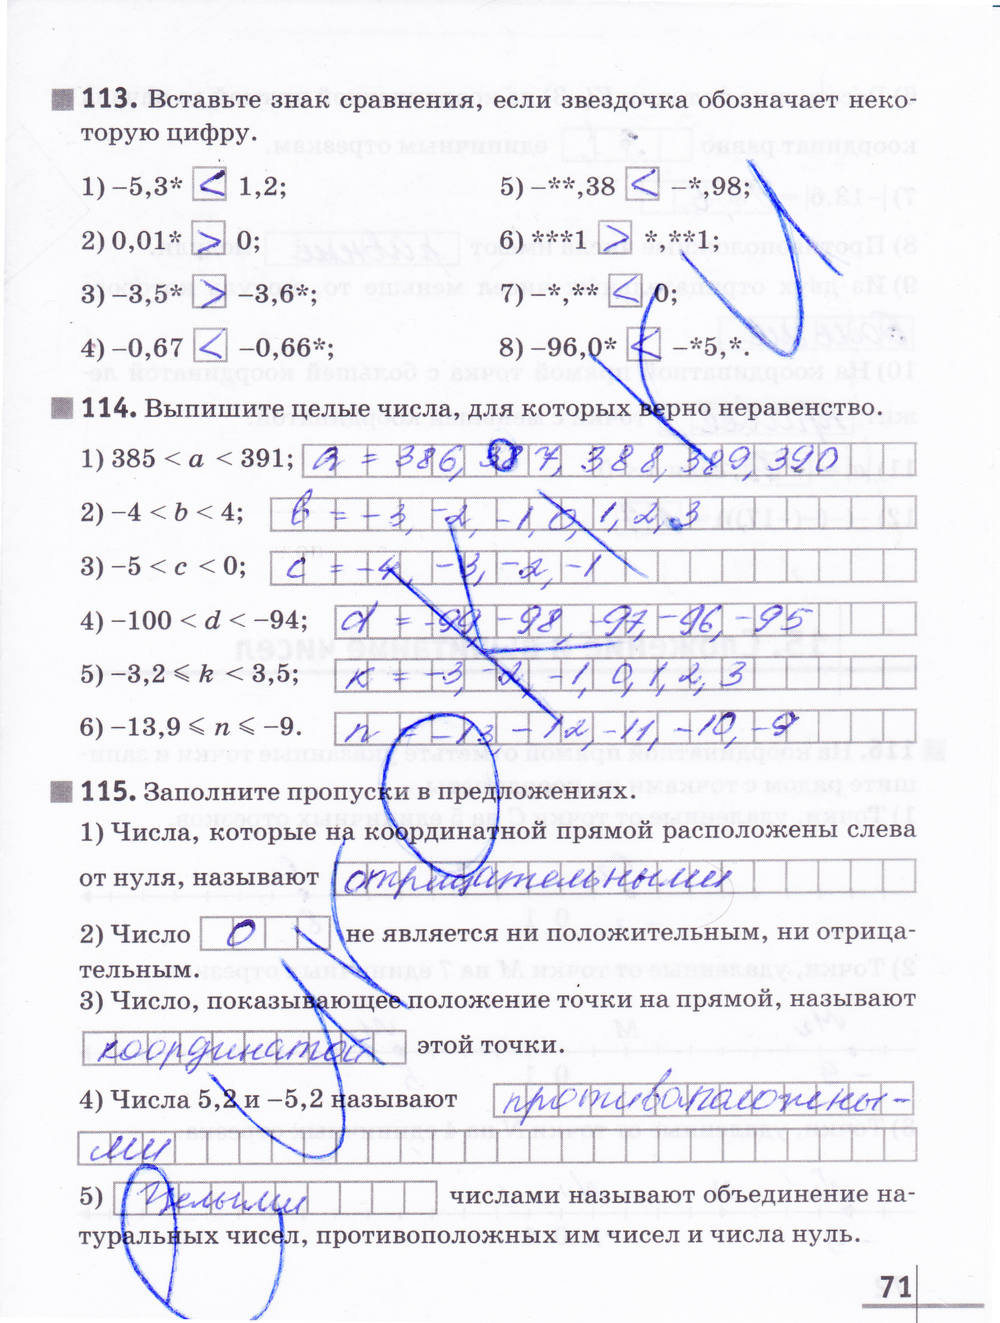 113. Вставьте знак сравнения, если звездочка обозначает неко-
торую цифру.
1) –5,3* < 1,2;
5) –**,38 < –*,98;
2) 0,01* > 0;
6) ***1 > *,**1;
3) –3,5* > –3,6*;
7) –*,** < 0;
4) –0,67 < –0,66*;
8) –96,0* < –*5,*.
114. Выпишите целые числа, для которых верно неравенство.
1) 385 < a < 391; a = 386, 387, 388, 389, 390
2) –4 < b < 4; b = –3, –2, –1, 0, 1, 2, 3
3) –5 < c < 0; c = –4, –3, –2, –1
4) –100 < d < –94; d = –99, –98, –97, –96, –95
5) –3,2 ⩽ k < 3,5; k = –3, –2, –1, 0, 1, 2, 3
6) –13,9 ⩽ n ⩽ –9. n = –13 – 12, –11, –10, –9
115. Заполните пропуски в предложениях.
1) Числа, которые на координатной прямой расположены слева
от нуля, называют отрицательными
2) Число 0 не является ни положительным, ни отрица-
тельным.
3) Число, показывающее положение точки на прямой, называют
координатой этой точки.
4) Числа 5,2 и –5,2 называют противоположны-
ми
5) Целыми числами называют объединение на-
туральных чисел, противоположных им чисел и числа нуль.
71